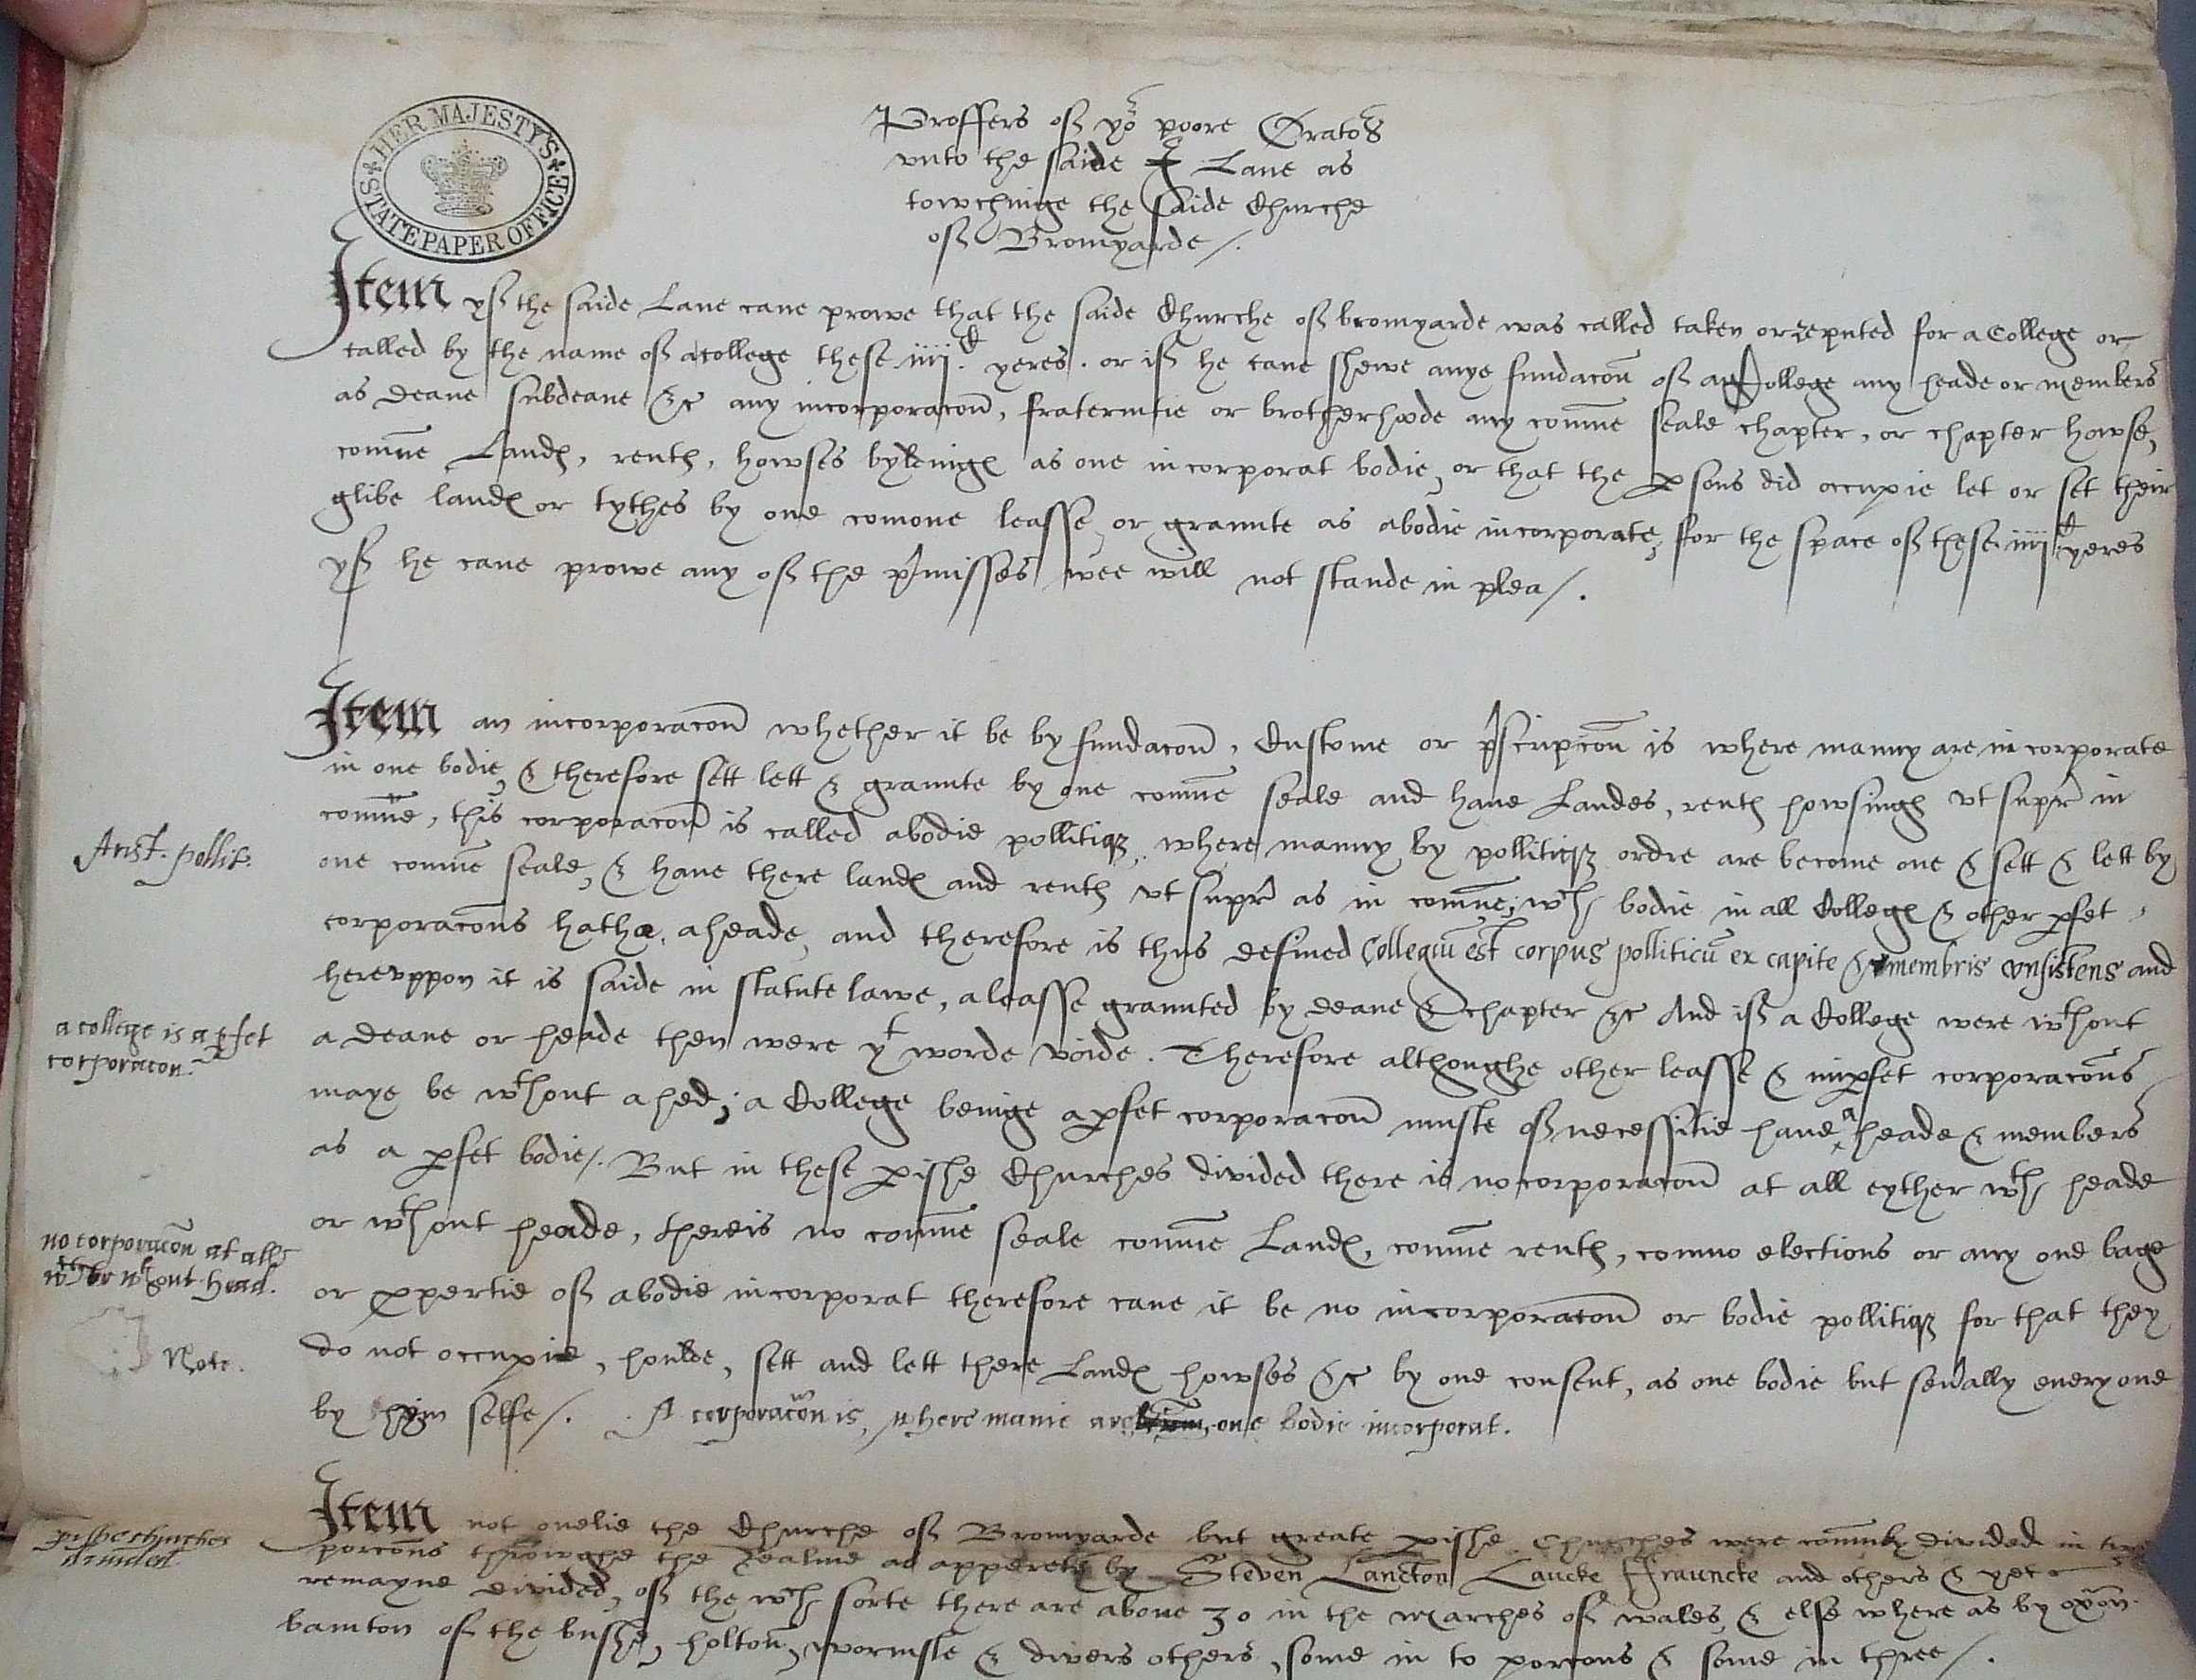 HER MAJESTY'S STATE PAPER OFFICE
Proffers of yor poore Orators
vnto the saide Lane as
towchinge the saide Churche
of Bromyarde/.
Item yf the saide Lane cane prove that the saide Churche of bromyarde was called taken or reputed for a College or
called by the name of a college these iiij C yeres . or if he cane shewe anye fundacoñ of any College any heade or members
as deane subdeane &c any incorporacoñ, fraternitie or brotherhode any comñe seale chapter, or chapter howse,
comñe Landes, rentes, howses byldinges as one incorporat bodie, or that the psons did occupie let or set their
glibe landes or tythes by one comone leasse, or graunte as abodie incorporate, for the space of these iiij C yeres
yf he cane prove any of the pmisses wee will not stande in plea/.
Item an incorporacoñ whether it be by fundacoñ, Custome or pscripcoñ is where manny are in corporate
in one bodie, & therefore sett lett & graunte by one comñe seale and haue Landes, rentes howsinges vt supr in
comñe, this corporacoñ is called abodie pollitiqz, where manny by pollitiqz ordre are become one & sett & lett by
Arist. pollit:
one comñe seale, & haue there landes and rentes vt supr as in comñe; wch bodie in all Colleges & other pfet
corporacoñs hathe a heade, and therefore is thus defined Collegiũ est corpus polliticũ ex capite & membris consistens and
herevppon it is saide in statute lawe, a leasse graunted by deane & chapter &c And if a College were wthout
a college is a pfet
corporacon.
a deane or heade then were yt worde voide. Therefore althoughe other leasse & impfet corporacoñs
maye be wthout a hed; a College beinge a pfet corporacoñ muste of necessitie haue a heade & members
as a pfet bodie/. But in these pishe Churches divided there is no corporacoñ at all eyther wth heade
or wthout heade, there is no comñe seale comñe Landes, comñe rentes, comno elections or any one bage
no corporacoñ at all
wth or wthout head.
or ppertie of abodie incorporat therefore cane it be no incorporacoñ or bodie pollitiqz for that they
Note.
do not occupie, houlde, sett and lett there Landes howses &c by one consent, as one bodie but seually euery one
by hym selfe/. A corporacon is, where manie are one bodie incorporat.
Item not onelie the Churche of Bromyarde but greate pishe Churches were comunly divided in two
pishe churches
diuided
porcons throwghe the Realme as appereth by Steven Lancton Laucke Frauncke and others & yet
remayne divided, of the wch sorte there are aboue 30 in the marches of wales, & else where as by oxon.
bamton of the bushe, holton, wormsle & divers others, some in to porcons & some in three/.